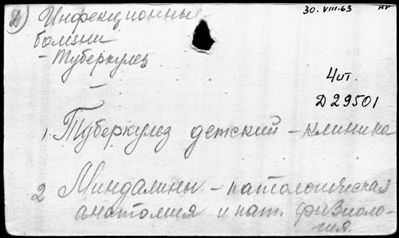 Д) Инфекционные
30.VIII-63 нт
болезни
- Туберкулез
4 ит.
Д 29501
1. Туберкулез детский - клиника
2 Миндалины - патологическая
анатомия и пат. физиоло-
гия.